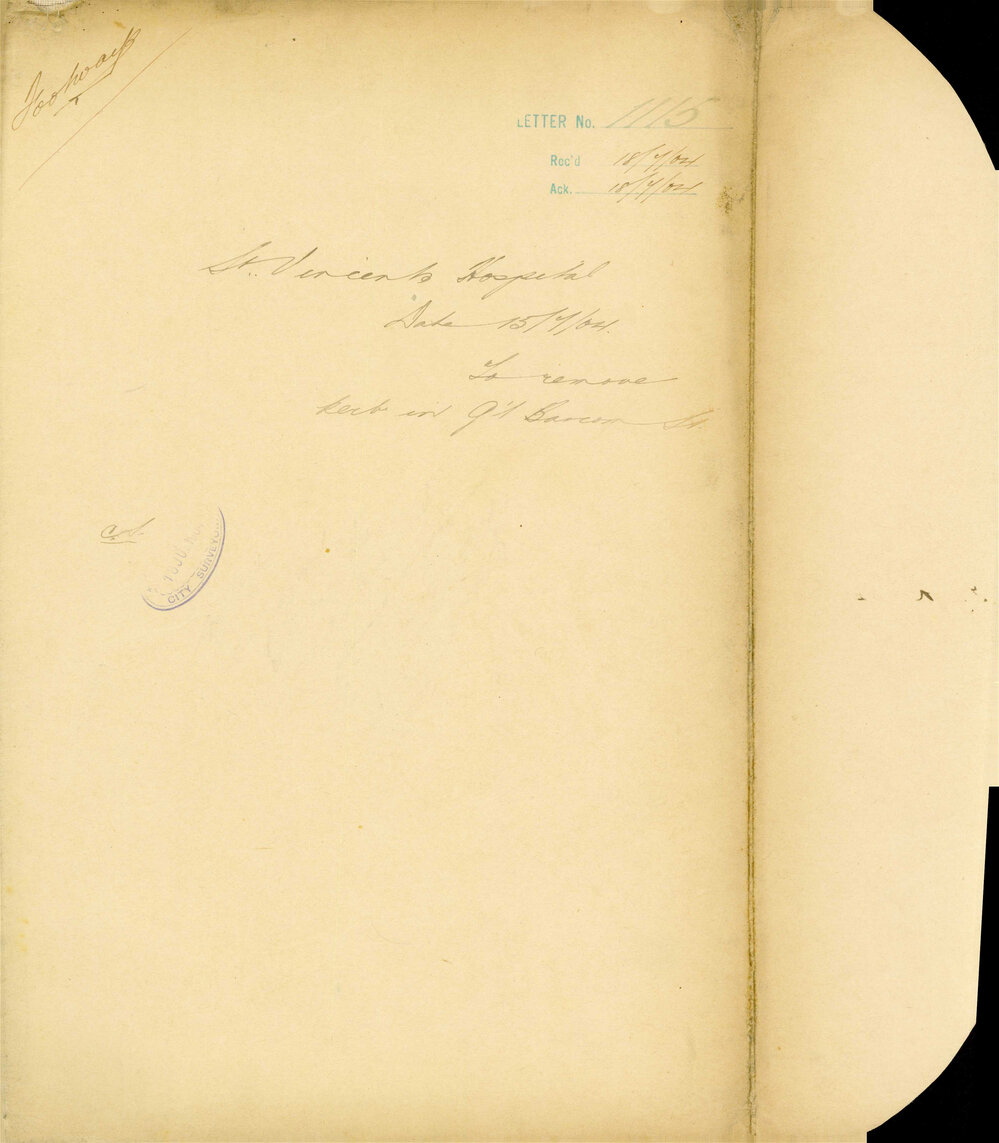 Footway
LETTER No. 1115
Rec'd 18/7/04
Ack. 18/7/04
St. Vincents Hospital
Date 15/7/04.
To remove
kerb in G't Barcom St.
CITY SURVEYOR